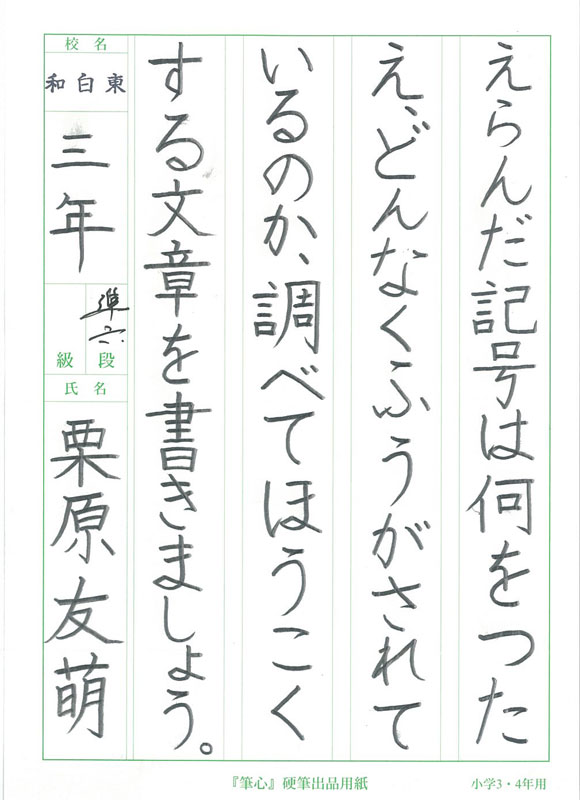 えらんだ記号は何をつた
え、どんなくふうがされて
いるのか、調べてほうこく
する文章を書きましょう。
校名
和白東
三年
準六
級 段
氏名
栗原友萌
『筆心』硬筆出品用紙
小学3・4年用